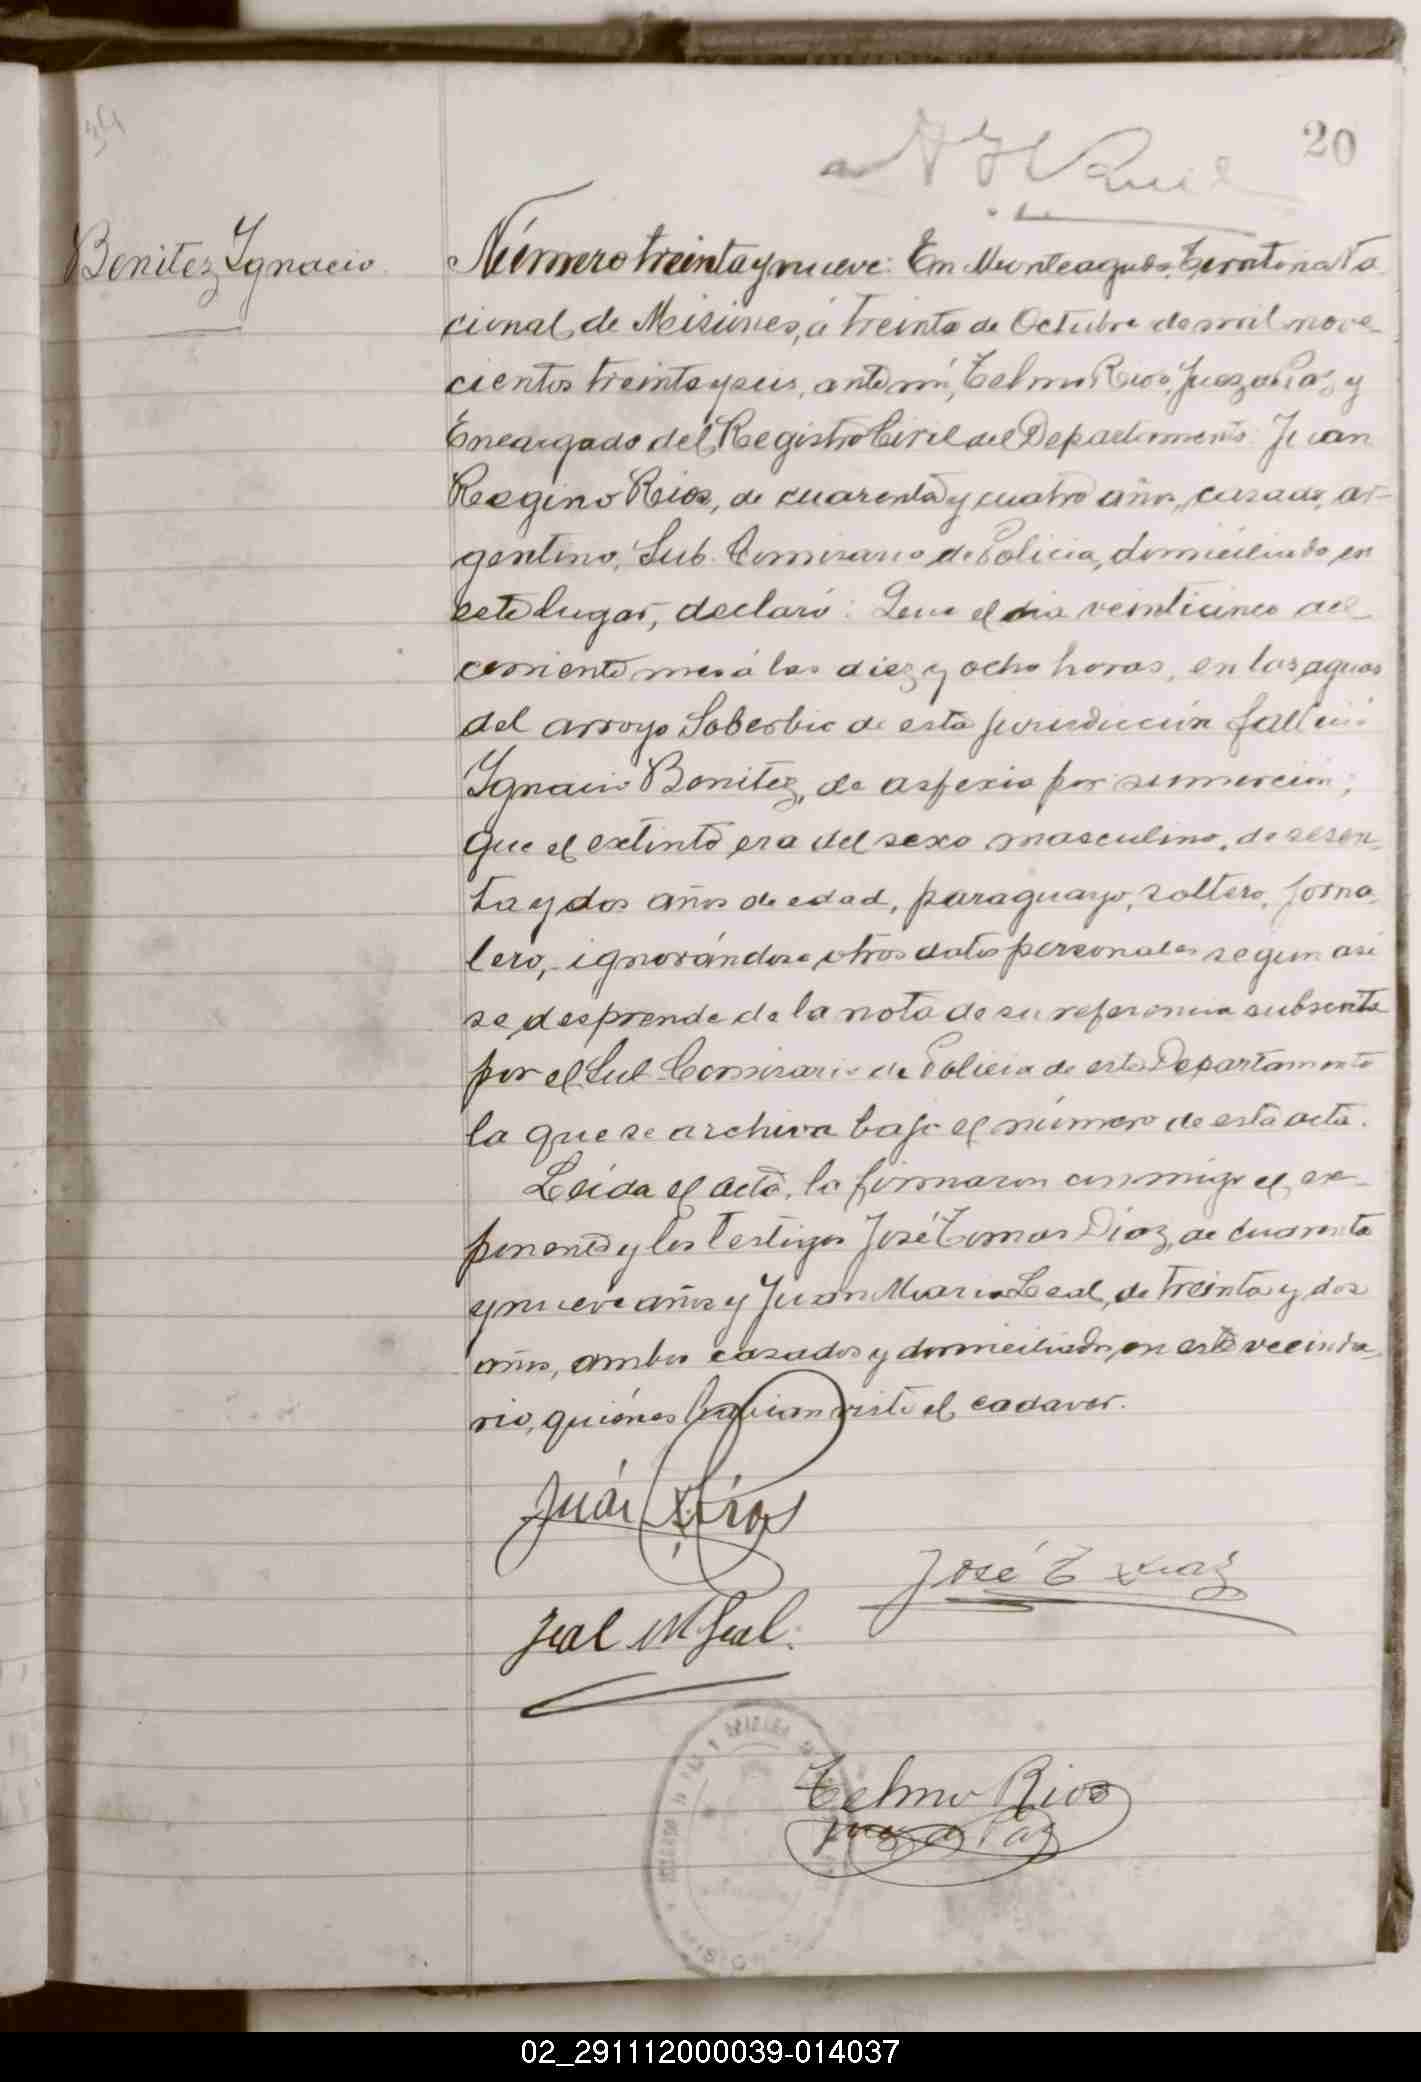 20
Benitez Ignacio
Número treinta y nueve: En Monteagudo, Territorio Na
cional de Misiones, á treinta de Octubre de mil nove-
cientos treinta y seis, ante mí, Telmo Rios, Juez de Paz y
Encargado del Registro Civil del Departamento: Juan
Regino Rios, de cuarenta y cuatro años, casado, ar-
gentino, Sub. Comisario de Policia, domiciliado en
este lugar, declaró: Que el dia veinticinco del
corriente mes á las diez y ocho horas, en las aguas
del arroyo Soberbio de esta jurisdicción falleció
Ignacio Benitez, de asfexia por sumerción;
que el extinto era del sexo masculino, de sesen-
ta y dos años de edad, paraguayo, soltero, jorna-
lero, ignorándose otros datos personales segun asi
se desprende de la nota de su referencia subscrita
por el Sub-Comisario de Policia de este Departamento
la que se archiva bajo el número de esta acta.
Leida el acta, la firmaron conmigo el ex-
ponente y los testigos José Tomas Diaz, de cuarenta
y nueve años y Juan Maria Leal, de treinta y dos
años, ambos casados y domiciliados en este vecinda-
rio, quiénes habian visto el cadaver.
Juan R. Rios
José T Diaz
M Leal.
Telmo Rios
Juez de Paz
02_291112000039-014037